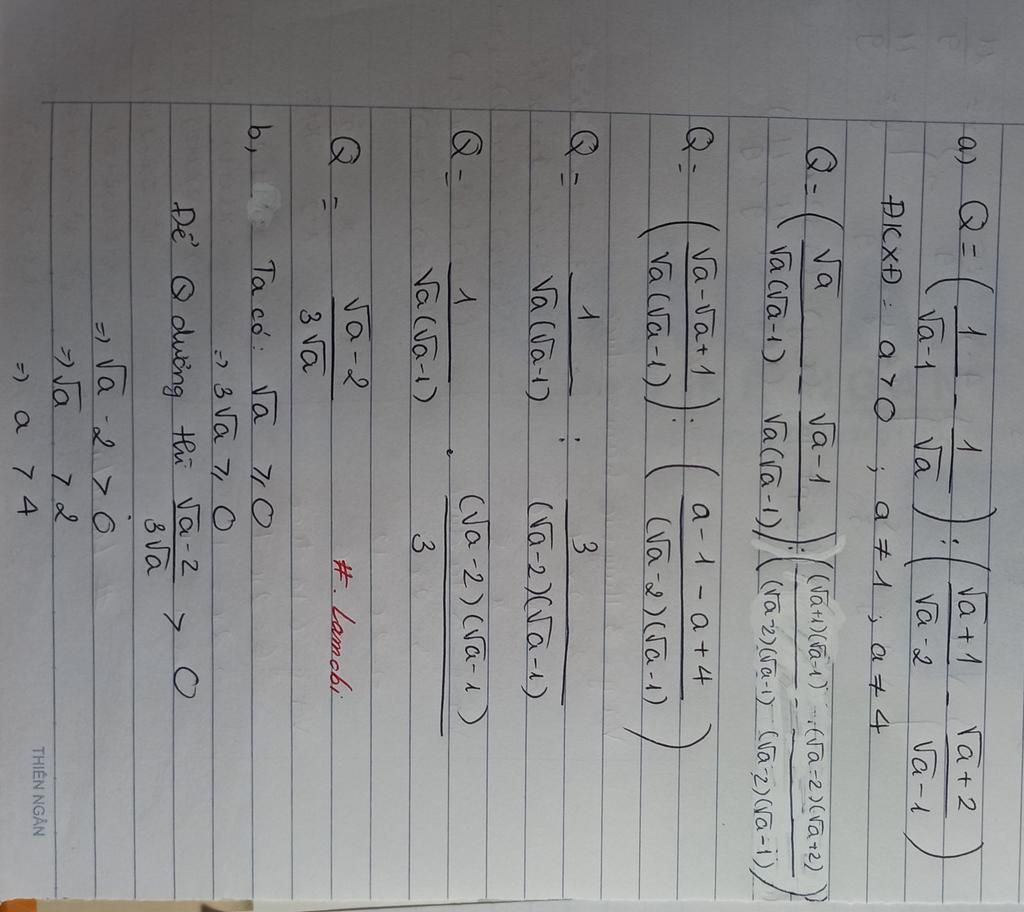 a) Q = ( 1/(√a-1) - 1/√a ) : ( (√a+1)/(√a-2) - (√a+2)/(√a-1) )
ĐKXĐ: a > 0 ; a ≠ 1 ; a ≠ 4
Q = ( √a/(√a(√a-1)) - (√a-1)/(√a(√a-1)) ) : ( ((√a+1)(√a-1))/((√a-2)(√a-1)) - ((√a-2)(√a+2))/((√a-2)(√a-1)) )
Q = ( (√a-√a+1)/(√a(√a-1)) ) : ( (a-1-a+4)/((√a-2)(√a-1)) )
Q = 1/(√a(√a-1)) : 3/((√a-2)(√a-1))
Q = 1/(√a(√a-1)) . ((√a-2)(√a-1))/3
Q = (√a-2)/(3√a) #. Lamobi
b, Ta có: √a ⩾ 0
=> 3√a ⩾ 0
Để Q dương thì (√a-2)/(3√a) > 0
=> √a - 2 > 0
=> √a > 2
=> a > 4
THIÊN NGÂN